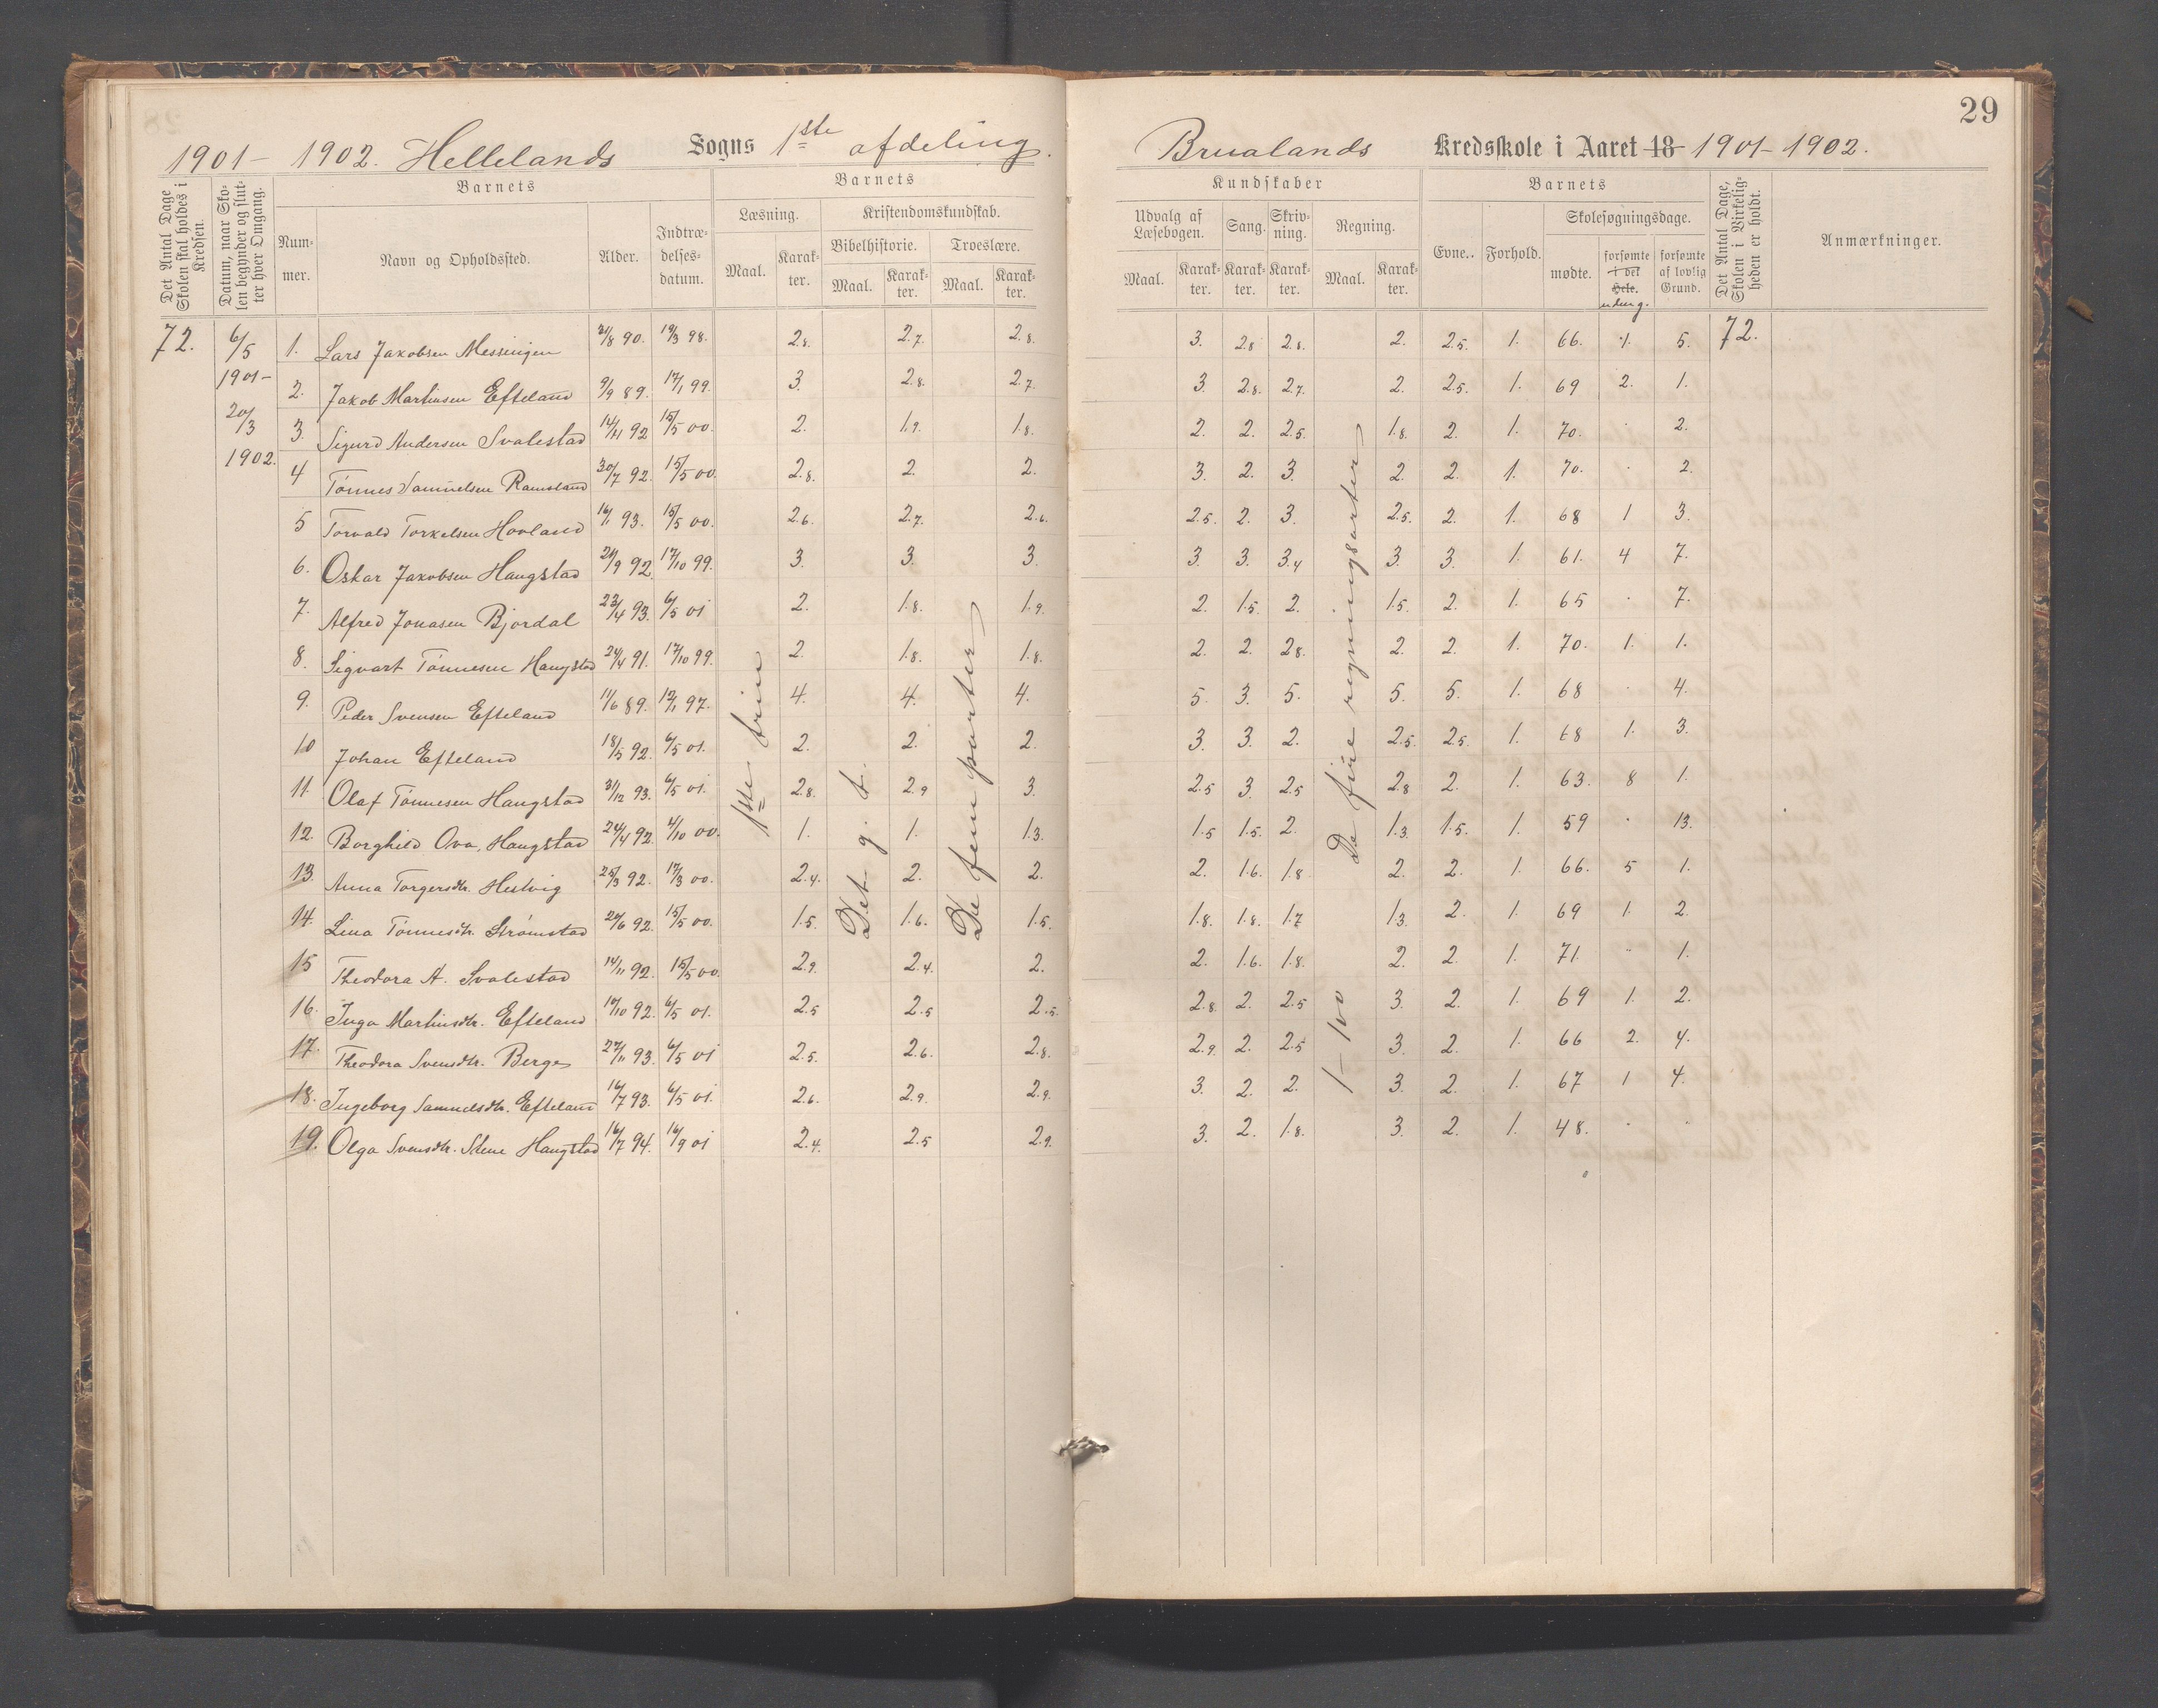 29
1901 - 1902. Hellelands Sogns 1ste afdeling. Brualands Kredsskole i Aaret 18 1901 - 1902.
Det Antal Dage Skolen skal holdes i Kredsen.
Datum, naar Skolen begynder og slutter hver Omgang.
Barnets
Nummer.
Navn og Opholdssted.
Alder.
Indtrædelsesdatum.
Barnets
Læsning.
Maal. Karakter.
Kristendomskundskab.
Bibelhistorie. Troeslære.
Maal. Karakter. Maal. Karakter.
Kundskaber
Udvalg af Læsebogen. Sang. Skrivning. Regning.
Maal. Karakter. Karakter. Karakter. Maal. Karakter.
Barnets
Evne. Forhold. Skolesøgningsdage.
mødte. forsømte i det Hele. uden g. forsømte af lovlig Grund.
Det Antal Dage, Skolen i Virkeligheden er holdt.
Anmærkninger.
72. 6/5 1901 - 20/3 1902.
1ste trin
Det g. t.
De fem parter
De fire regningsarter
1 - 100
1. Lars Jakobsen Messingen 21/8 90. 19/3 98. 2.8. 2.7. 2.8. 3. 2.8 2.8. 2. 2.5. 1. 66. 1. 5. 72.
2. Jakob Martinsen Efteland 9/9 89. 17/1 99. 3. 2.8. 2.7. 3 2.8. 2.7. 2. 2.5. 1. 69 2. 1.
3. Sigurd Andersen Svalestad 14/11 92 15/5 00. 2. 1.9. 1.8. 2. 2. 2.5. 1.8. 2. 1. 70. . 2.
4 Tönnes Samuelsen Ramsland 30/7 92. 15/5 00. 2.8. 2. 2. 3. 2. 3. 2 2. 1. 70. . 2.
5 Torvald Torkelsen Hovland 16/1 93. 15/5 00. 2.6. 2.7. 2.6. 2.5. 2. 3. 2.5. 2. 1. 68 1 3.
6. Oskar Jakobsen Haugstad 21/9 92. 17/10 99. 3. 3. 3. 3. 3. 3.4 3. 3. 1. 61. 4 7.
7. Alfred Jonasen Bjordal 23/4 93. 6/5 01 2. 1.8. 1.9. 2. 1.5. 2. 1.5. 2. 1. 65 . 7.
8. Sigvart Tönnesen Haugstad 24/4 91. 17/10 99. 2. 1.8. 1.8. 2. 2. 2.8. 2. 2. 1. 70. 1. 1.
9. Peder Svensen Efteland 11/6 89. 12/1 97. 4. 4. 4. 5. 3. 5. 5. 5. 1. 68 . 4.
10 Johan Efteland 18/5 92. 6/5 01. 2. 2. 2. 3. 3. 2. 2.5. 2.5. 1. 68 1. 3.
11. Olaf Tönnesen Haugstad 31/12 93. 6/5 01. 2.8. 2.9 3. 2.5 3. 2.5 2.8 2. 1. 63. 8 1.
12. Borghild Ova, Haugstad 24/4 92. 4/10 00. 1. 1. 1.3. 1.5 1.5. 2. 1.3. 1.5. 1. 59 . 13.
13. Anna Torgersdtr. Hestvig 25/3 92. 17/3 00. 2.4. 2. 2. 2. 1.6. 1.8 2. 2. 1. 66. 5 1.
14. Lina Tönnesdtr. Strømstad 24/6 92. 15/5 00. 1.5. 1.6. 1.5. 1.8. 1.8. 1.7 1.3. 2. 1. 69 1. 2.
15 Theodora A. Svalestad 14/11 92. 15/5 00. 2.9. 2.4. 2. 2. 1.6. 1.8. 2. 2. 1. 71. . 1.
16. Inga Martinsdtr. Efteland 10/10 92. 6/5 01. 2.5 2.5 2.5. 2.8. 2. 2.5 3. 2. 1. 69 1. 2.
17. Theodora Svensdtr. Berge 27/11 93. 6/5 01 2.5. 2.6. 2.8. 2.9. 2. 2.5 3. 2. 1. 66 2. 4.
18. Ingeborg Samuelsdtr. Efteland 16/7 93. 6/5 01. 2.6. 2.9. 2.9. 3. 2. 2. 3. 2. 1. 67 1 4.
19. Olga Svensdtr. Stene Haugstad 16/7 94. 16/9 01 2.4. 2.5 2.9. 3. 2. 1.8. 3. 2. 1. 48. . .